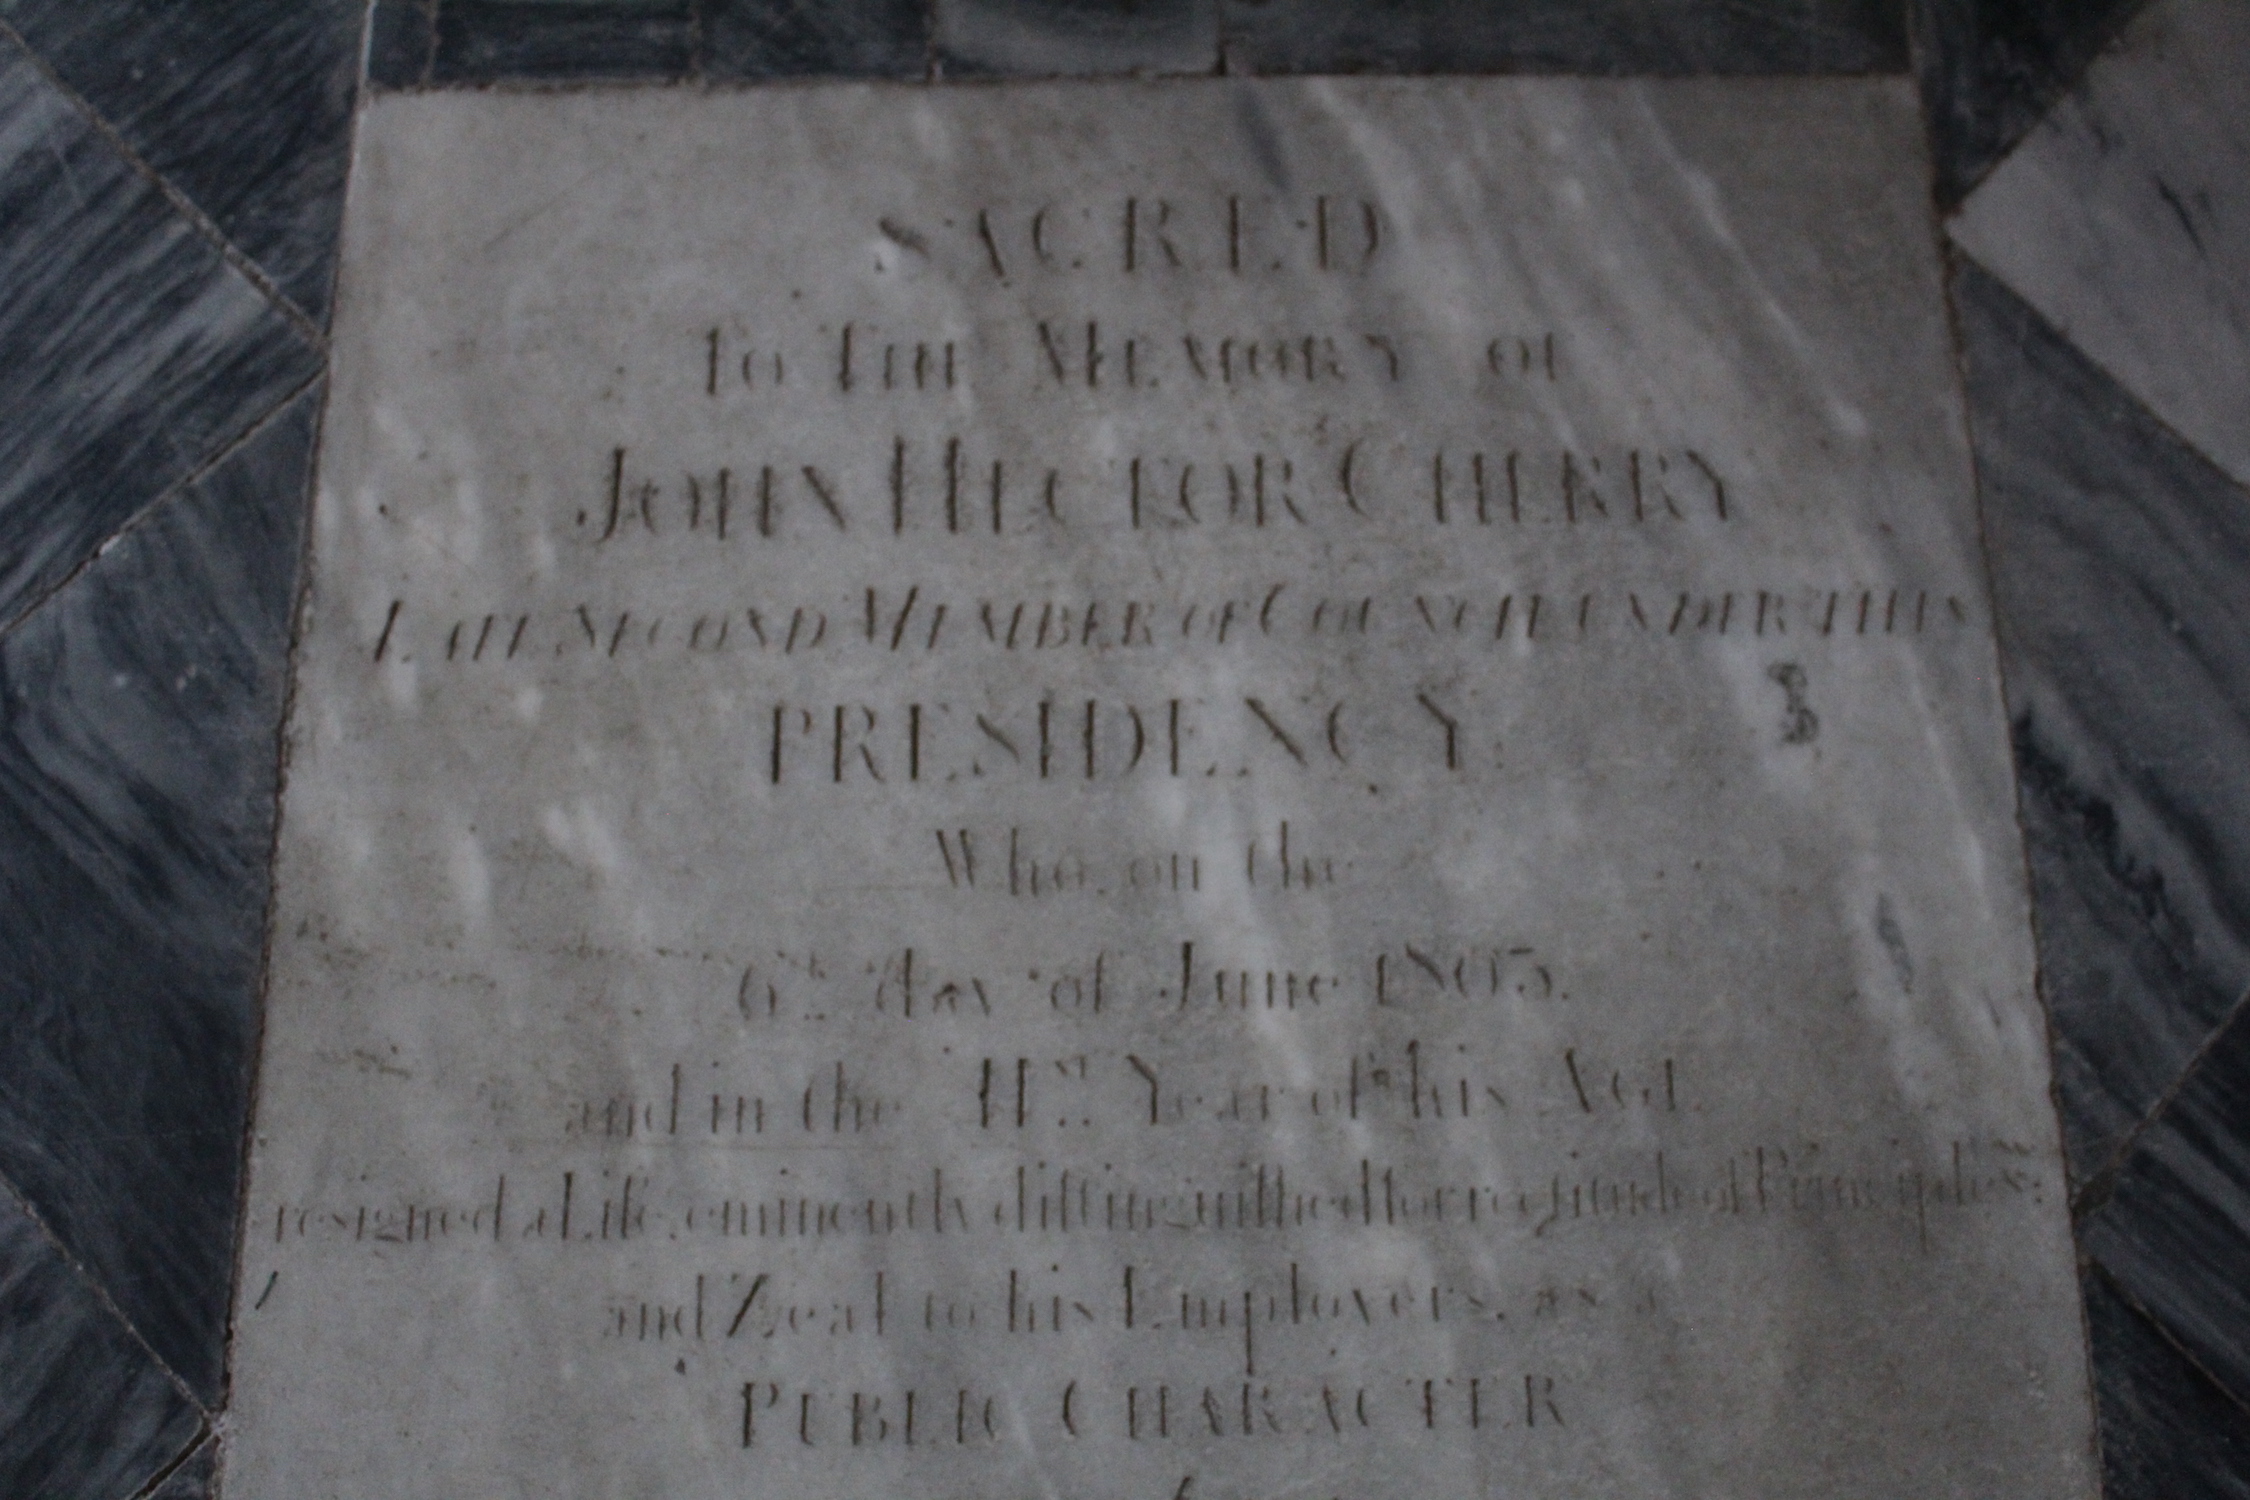 SACRED
TO THE MEMORY OF
JOHN HECTOR CHERRY
LATE SECOND MEMBER OF COUNCIL UNDER THIS
PRESIDENCY
Who on the
6th day of June 1803.
and in the Year of his AGE
resigned a Life, eminently diſtinguiſhed for rectitude of Principles
and Zeal to his Employers, as a
PUBLIC CHARACTER